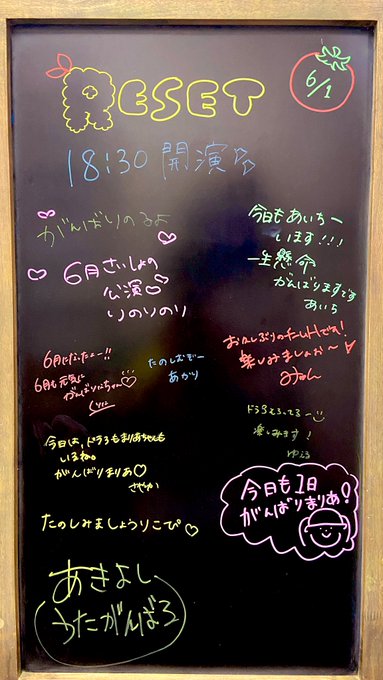 RESET
6/1
18:30 開演
がんばりのるよ
6月さいしょの
公演
りのりのり
今日もあいちー
います!!!
一生懸命
がんばりますです
あいち
6月になったよー!!
6月も元気に
たのしむぞー
あかり
楽しみましょおー
みおん
今日は、ドラ3もまりあちゃんも
いるね。
がんばりまりあ♡
さやか
楽しみます!
ゆうる
今日も1日
がんばりまりあ!
たのしみましょうりこぴ♡
あきよし
うたがんばろ